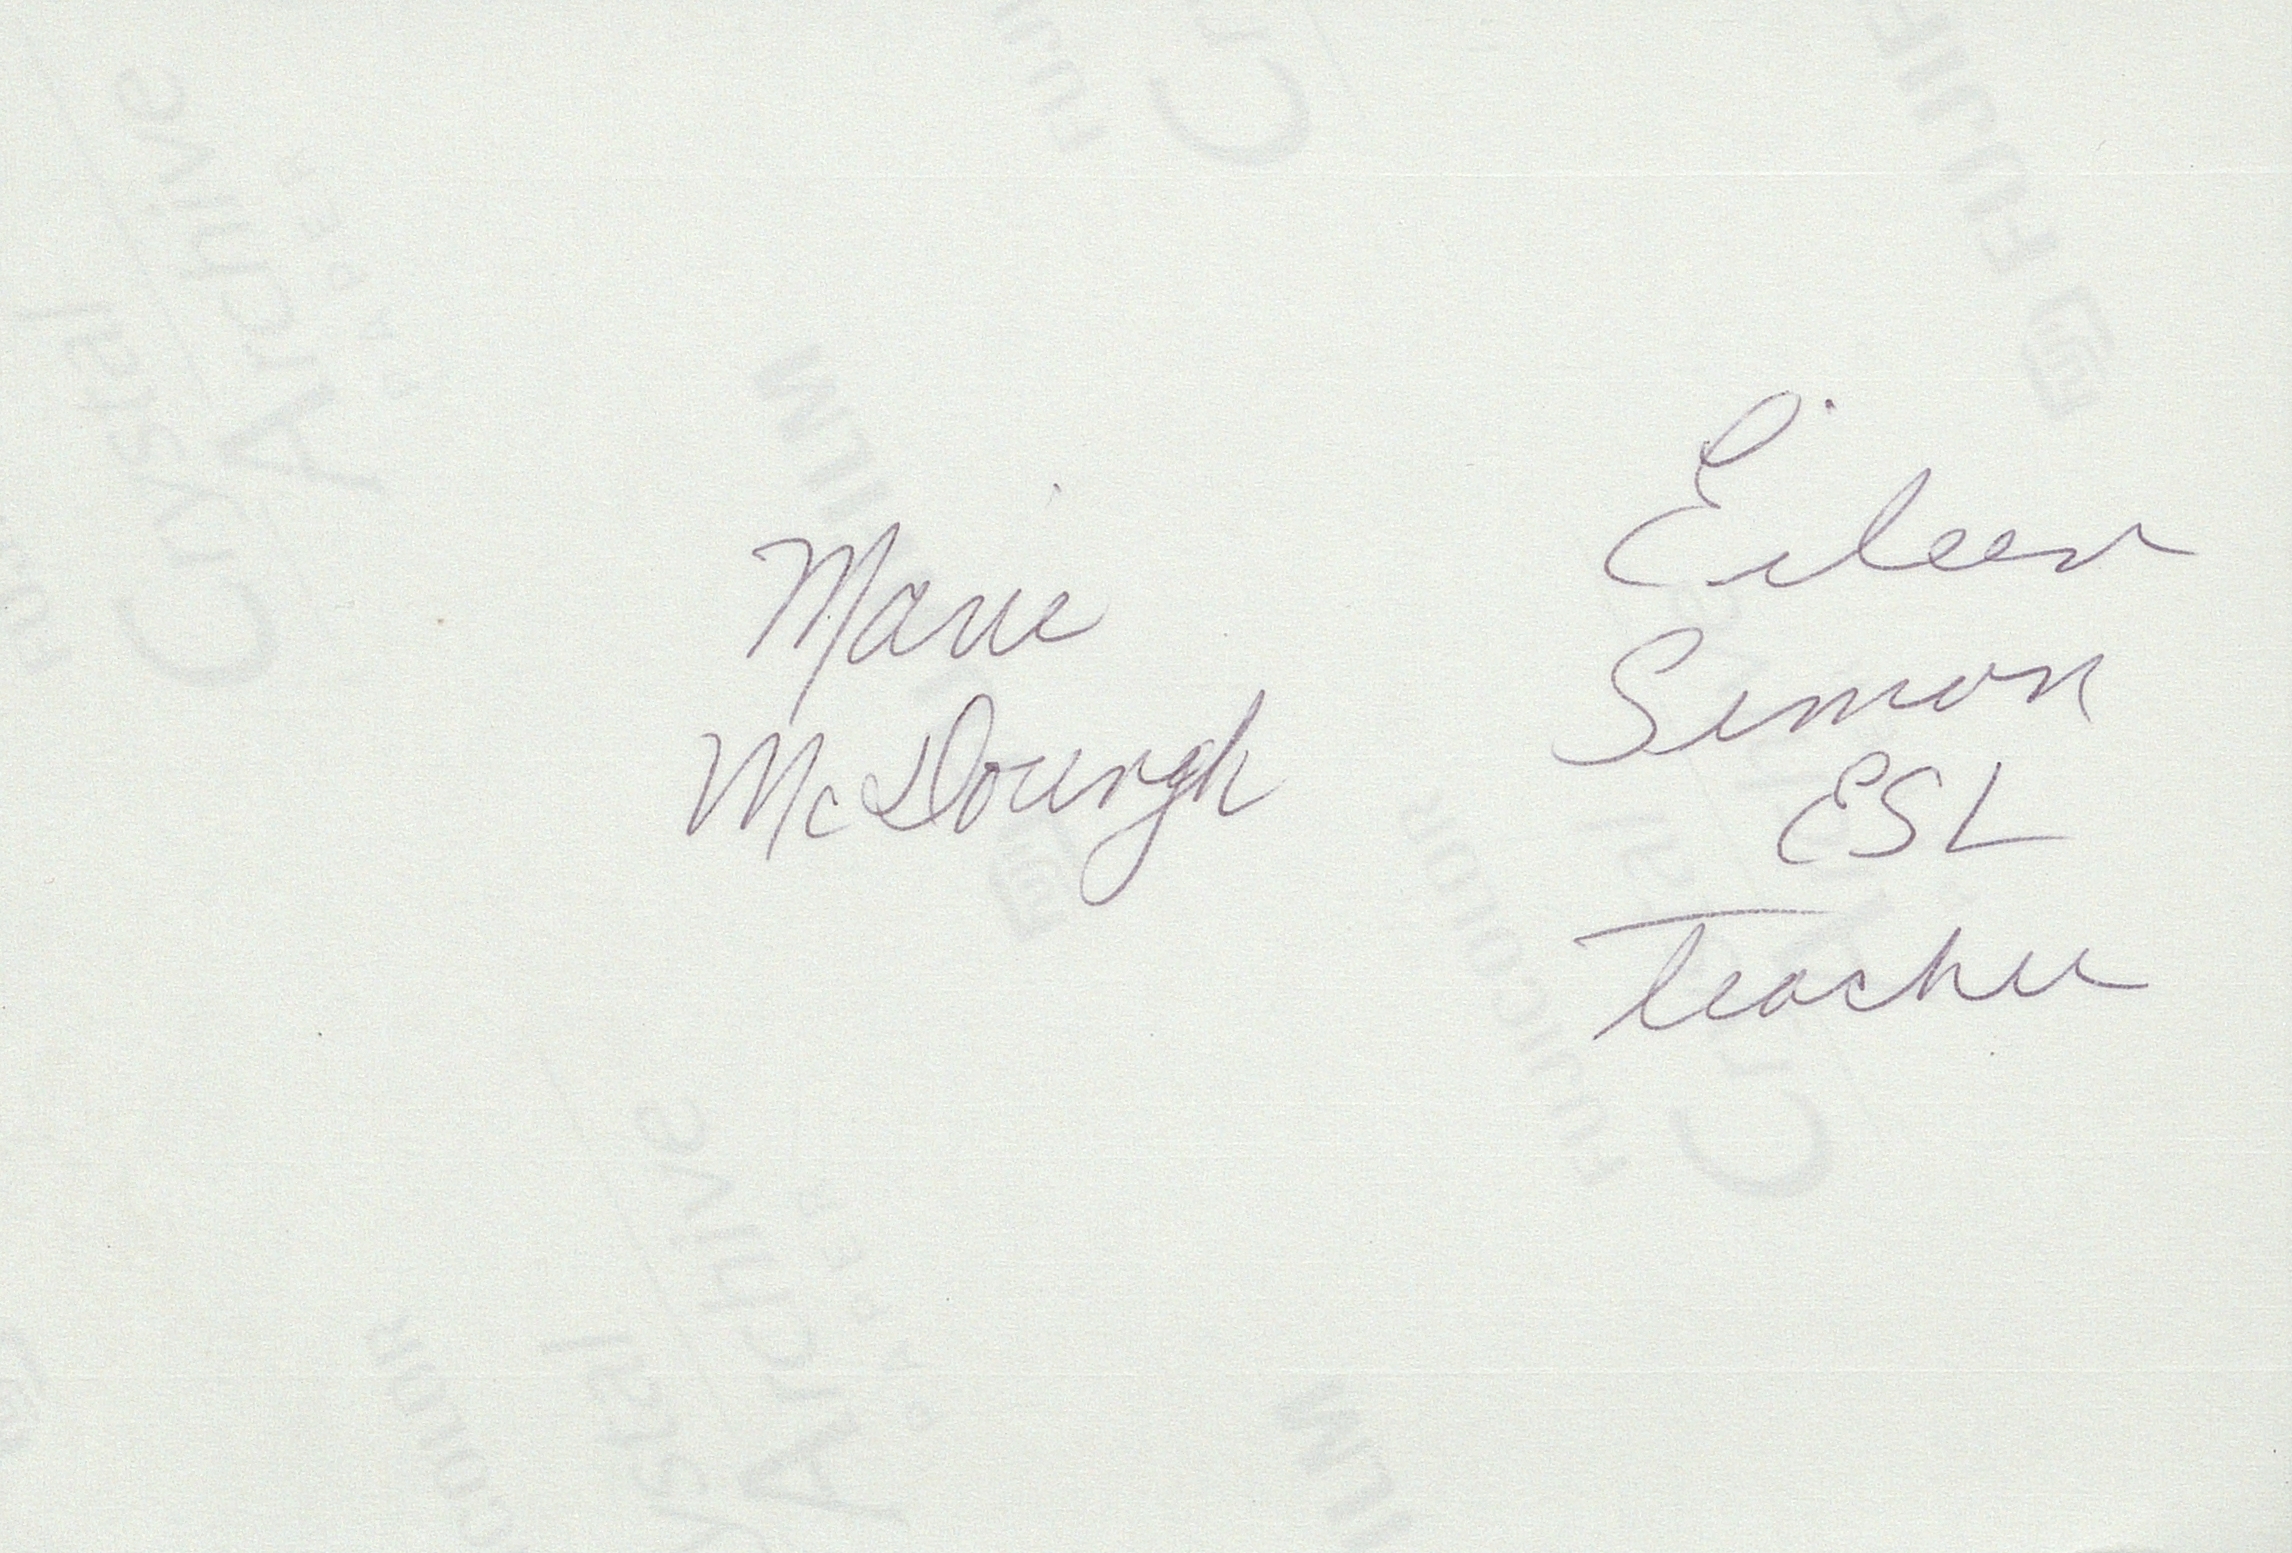 Marie
McDourgh
Eileen
Simon
ESL
Teacher